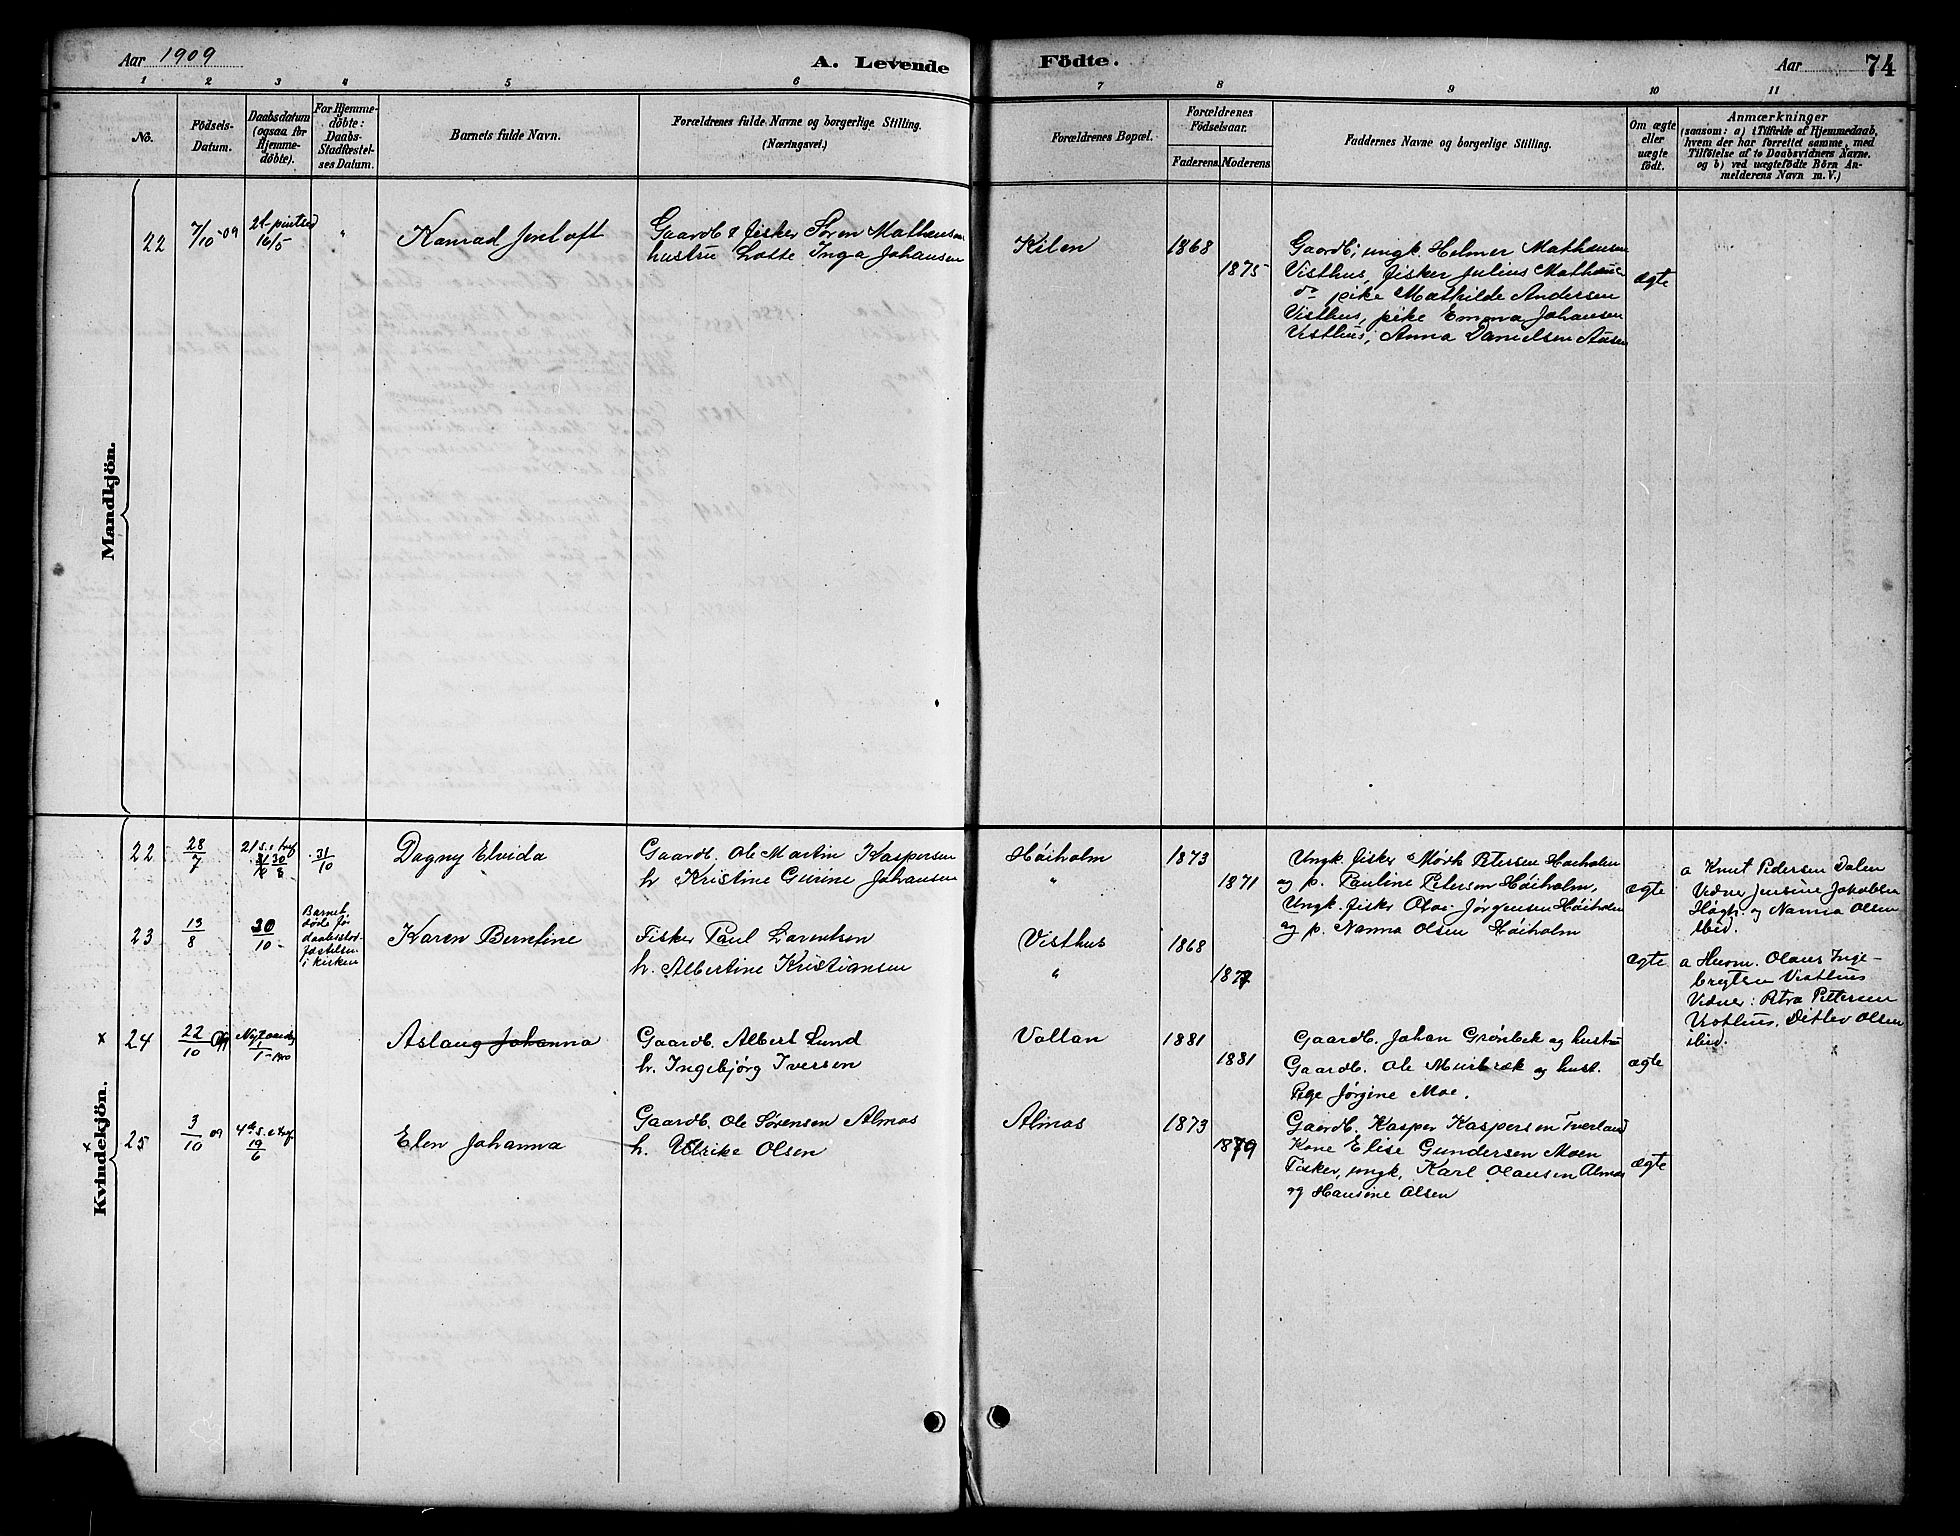 Aar 1909
A. Levende
Födte.
Aar
74
1 2 3 4 5 6 7 8 9 10 11
No.
Födsels-
Datum.
Daabsdatum
(ogsaa for
Hjemme-
döbte).
For Hjemme-
döbte:
Daabs-
Stadfæstel-
ses Datum.
Barnets fulde Navn.
Forældrenes fulde Navne og borgerlige Stilling.
(Næringsvei.)
Forældrenes Bopæl.
Forældrenes
Födselsaar.
Faderens. Moderens
Faddernes Navne og borgerlige Stilling.
Om ægte
eller
uægte
födt.
Anmærkninger
(saasom: a) i Tilfælde af Hjemmedaab,
hvem der har forrettet samme, med
Tilföielse af to Daabsvidners Navne.
og b) ved uægtefödte Börn An-
melderens Navn m. V.)
Mandkjön.
22
7/10 09
16/5
"
Konrad
Gaardb & fisker Søren Mathausen
hustru Lotte Inga Johansen
Kilen
1868
1875
Gaardb; ungk. Helmer Mathausen
Visthus, fisker Julius
do pike Mathilde Andersen
Visthus, pike Emma Johansen
Visthus, Anna Danielsen Ausen
ægte
Kvindekjön.
22
28/7
31/10
31/10
Dagny Elvida
Gaardb. Ole Martin Kaspersen
h. Kristine Gurine Johansen
Høiholm
"
1873
1871
Ungk. fisker Mørk Petersen Høiholm
og p. Pauline Petersen Høiholm,
Ungk. fisker Olai Jørgensen Høiholm
og p. Nanna Olsen Høiholm
ægte
a Knut Pedersen Dalen
Vidner Jensine Jakobsen
Høgh. og Nanna Olsen
ibid.
23
13/8
30/10
Barnet
døde før
daabsstad-
fæstelsen
i kirken
Karen Berntine
Fisker Paul Larentsen
h. Albertine Kristiansen
Visthus
"
1868
ægte
a Husm. Olaus Inge-
brigtsen Visthus
Vidner: Petra Pettersen
Visthus. Ditlev Olsen
ibid.
x
24
22/10 09
1/1-1910
Aslaug Johanna
Gaardb. Albert Lund
h. Ingebjørg Iversen
Valtan
1881
1881
Gaardb. Johan Grønbek og hustru
Gaardb. Ole Murbræk og hust.
Pige Jørgine Moe.
ægte
x
25
3/10 09
19/6
Elen Johanna
Gaardb. Ole Sørensen Almos
h. Ulrike Olsen
Almos
1873
1879
Gaardb. Kasper Kaspersen Tverland
Kone Elise Gundersen Moen
Fisker, ungk. Karl Olausen Almos
og Hansine Olsen
ægte